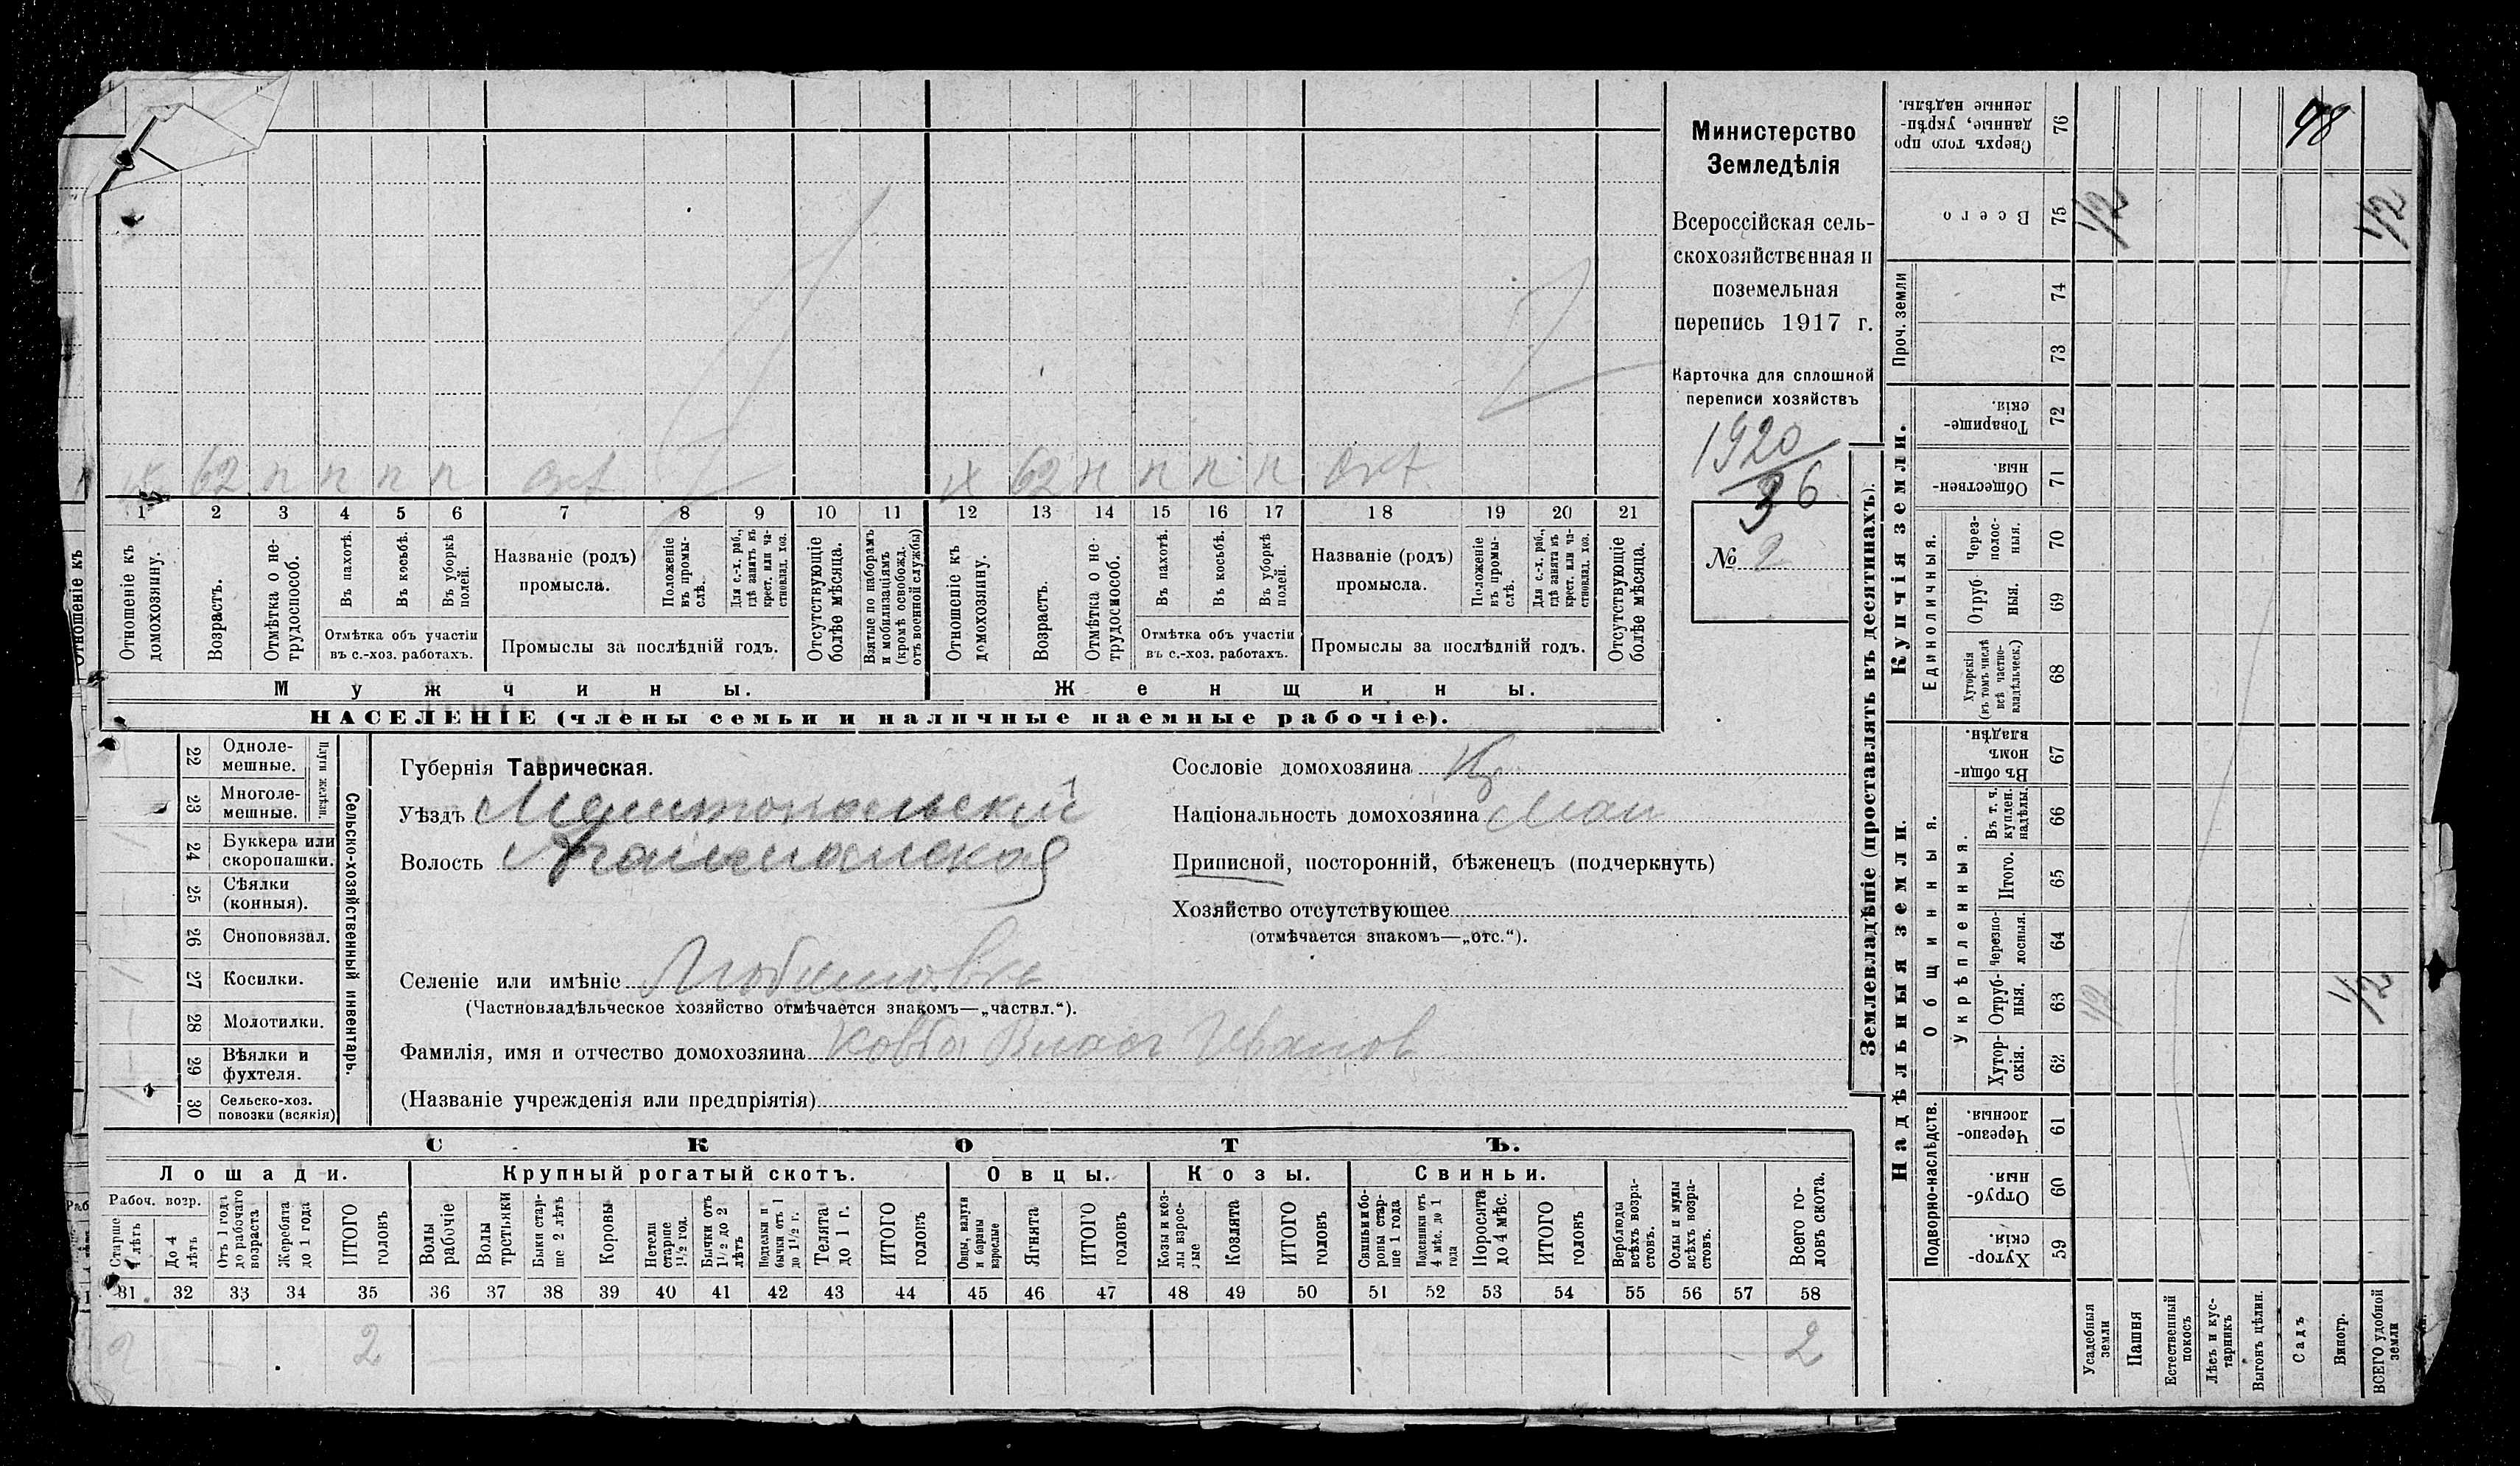 Министерство
Земледѣлія
Всероссійская сель-
скохозяйственная и
поземельная
перепись 1917 г.
Карточка для сплошной
переписи хозяйствъ
1920
36
№ 2
98
х 62 п п п п окт
х 62 н п п п окт.
1 2 3 4 5 6 7 8 9 10 11 12 13 14 15 16 17 18 19 20 21
Отношеніе къ домохозяину.
Возрастъ.
Отмѣтка о не-трудоспособ.
Въ пахотѣ.
Въ косьбѣ.
Въ уборкѣ полей.
Отмѣтка объ участіи
въ с.-хоз. работахъ.
Названіе (родъ)
промысла.
Положеніе въ промы-слѣ.
Для с.-х. раб., гдѣ занятъ въ крест. или ча-стновлад. хоз.
Промыслы за послѣдній годъ.
Отсутствующіе болѣе мѣсяца.
Взятые по наборамъ и мобилизаціямъ (кромѣ освобожд. отъ военной службы)
Отношеніе къ домохозяину.
Возрастъ.
Отмѣтка о не-трудоспособ.
Въ пахотѣ.
Въ косьбѣ.
Въ уборкѣ полей.
Отмѣтка объ участіи
въ с.-хоз. работахъ.
Названіе (родъ)
промысла.
Положеніе въ промы-слѣ.
Для с.-х. раб., гдѣ занята въ крест. или ча-стновлад. хоз.
Промыслы за послѣдній годъ.
Отсутствующіе болѣе мѣсяца.
Мужчины.
Женщины.
НАСЕЛЕНІЕ (члены семьи и наличные наемные рабочіе).
Сельско-хозяйственный инвентарь.
Плуги желѣзн.
22 Одноле-мешные.
23 Многоле-мешные.
24 Буккера или скоропашки.
25 Сѣялки (конныя).
26 Сноповязал.
27 Косилки.
28 Молотилки.
29 Вѣялки и фухтеля.
30 Сельско-хоз. повозки (всякія)
Губернія Таврическая.
Уѣздъ Мелитопольскій
Волость
Селеніе или имѣніе
(Частновладѣльческое хозяйство отмѣчается знакомъ—„частвл.“).
Фамилія, имя и отчество домохозяина Ковба Власъ Иванов
(Названіе учрежденія или предпріятія)
Сословіе домохозяина Кр
Національность домохозяина Мал
Приписной, посторонній, бѣженецъ (подчеркнуть)
Хозяйство отсутствующее
(отмѣчается знакомъ—„отс.“).
СКОТЪ.
Лошади. Крупный рогатый скотъ. Овцы. Козы. Свиньи.
Рабоч. возр.
Старше 4 лѣтъ
До 4 лѣтъ
Отъ 1 года до рабочаго возраста
Жеребята до 1 года
ИТОГО головъ
Волы рабочіе
Волы третьяки
Быки стар-ше 2 лѣтъ
Коровы
Нетели старше 1½ год.
Бычки отъ 1½ до 2 лѣтъ
Подтелки и бычки отъ 1 до 1½ г.
Телята до 1 г.
ИТОГО головъ
Овцы, валухи и бараны взрослые
Ягнята
ИТОГО головъ
Козы и коз-лы взрос-лые
Козлята
ИТОГО головъ
Свиньи и бо-ровы стар-ше 1 года
Подсвинки отъ 4 мѣс. до 1 года
Поросята до 4 мѣс.
ИТОГО головъ
Верблюды всѣхъ возра-стовъ.
Ослы и мулы всѣхъ возра-стовъ.
Всего го-ловъ скота.
31 32 33 34 35 36 37 38 39 40 41 42 43 44 45 46 47 48 49 50 51 52 53 54 55 56 57 58
2 2 2
Землевладѣніе (проставлять въ десятинахъ).
Купчія земли.
Надѣльныя земли.
Сверхъ того про-данные, укрѣп-ленные надѣлы. 76
Всего 75 1/2 1/2
Проч. земли 74 73
Товарище-скія. 72
Обществен-ныя. 71
Единоличныя.
Через-полос-ныя. 70
Отруб-ныя. 69
Хуторскія (въ томъ числѣ всѣ частно-владѣльческ.) 68
Общинныя.
Въ общи-номъ владѣн. 67
Укрѣпленныя.
Въ т. ч. куплен. надѣлы. 66
Итого. 65
Черезпо-лосныя. 64
Отруб-ныя. 63 1/2 1/2
Хутор-скія. 62
Подворно-наслѣдств.
Черезпо-лосныя. 61
Отруб-ныя. 60
Хутор-скія. 59
Усадебныя земли
Пашня
Естественный покосъ
Лѣсъ и кус-тарникъ
Выгонъ цѣлин.
Садъ
Виногр.
ВСЕГО удобной земли